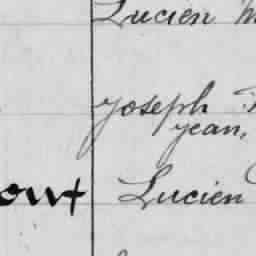 Lucien
Joseph
Jean,
out Lucien